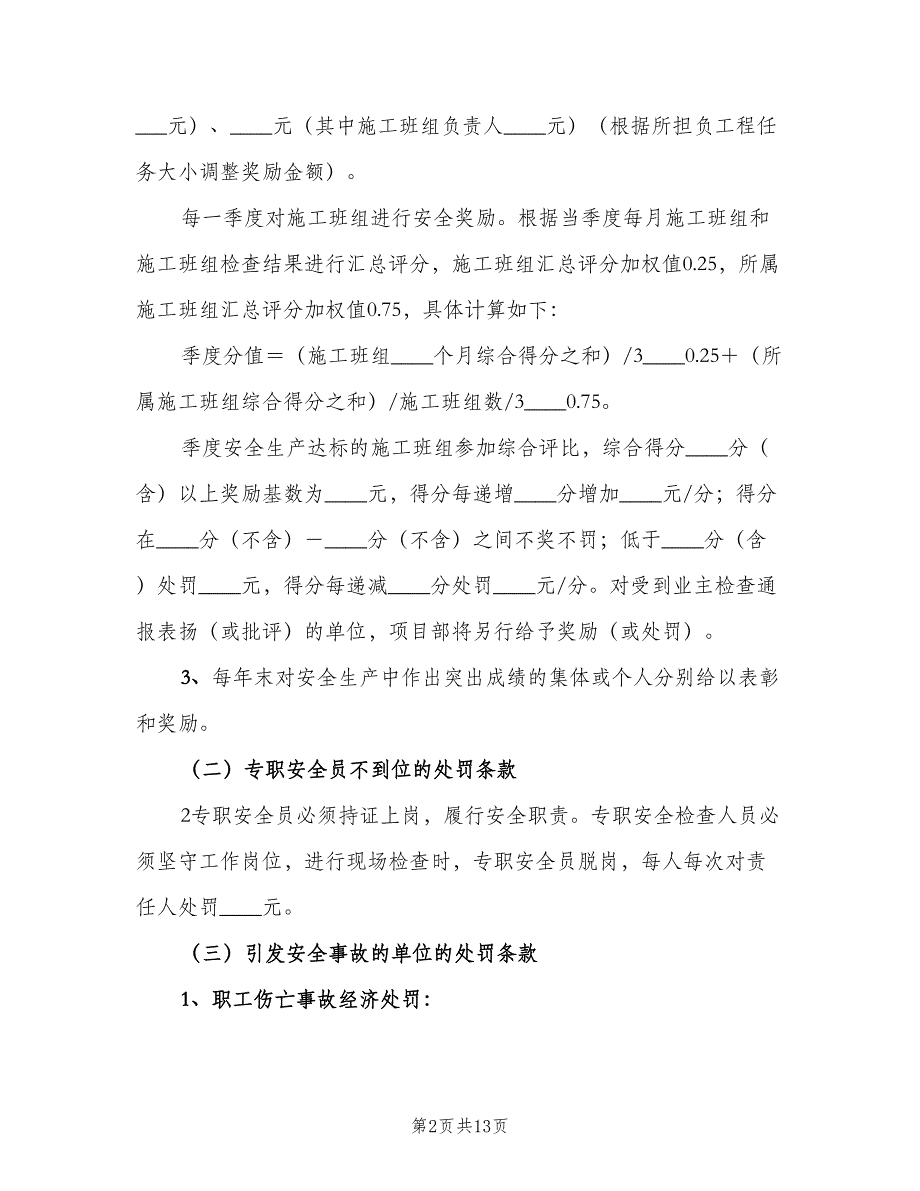 ___元）、____元（其中施工班组负责人____元）（根据所担负工程任
务大小调整奖励金额）。
每一季度对施工班组进行安全奖励。根据当季度每月施工班组和
施工班组检查结果进行汇总评分，施工班组汇总评分加权值0.25，所属
施工班组汇总评分加权值0.75，具体计算如下：
季度分值＝（施工班组____个月综合得分之和）/3____0.25＋（所
属施工班组综合得分之和）/施工班组数/3____0.75。
季度安全生产达标的施工班组参加综合评比，综合得分____分（
含）以上奖励基数为____元，得分每递增____分增加____元/分；得分
在____分（不含）－____分（不含）之间不奖不罚；低于____分（含
）处罚____元，得分每递减____分处罚____元/分。对受到业主检查通
报表扬（或批评）的单位，项目部将另行给予奖励（或处罚）。
3、每年末对安全生产中作出突出成绩的集体或个人分别给以表彰
和奖励。
（二）专职安全员不到位的处罚条款
2专职安全员必须持证上岗，履行安全职责。专职安全检查人员必
须坚守工作岗位，进行现场检查时，专职安全员脱岗，每人每次对责
任人处罚____元。
（三）引发安全事故的单位的处罚条款
1、职工伤亡事故经济处罚：
第2页共13页